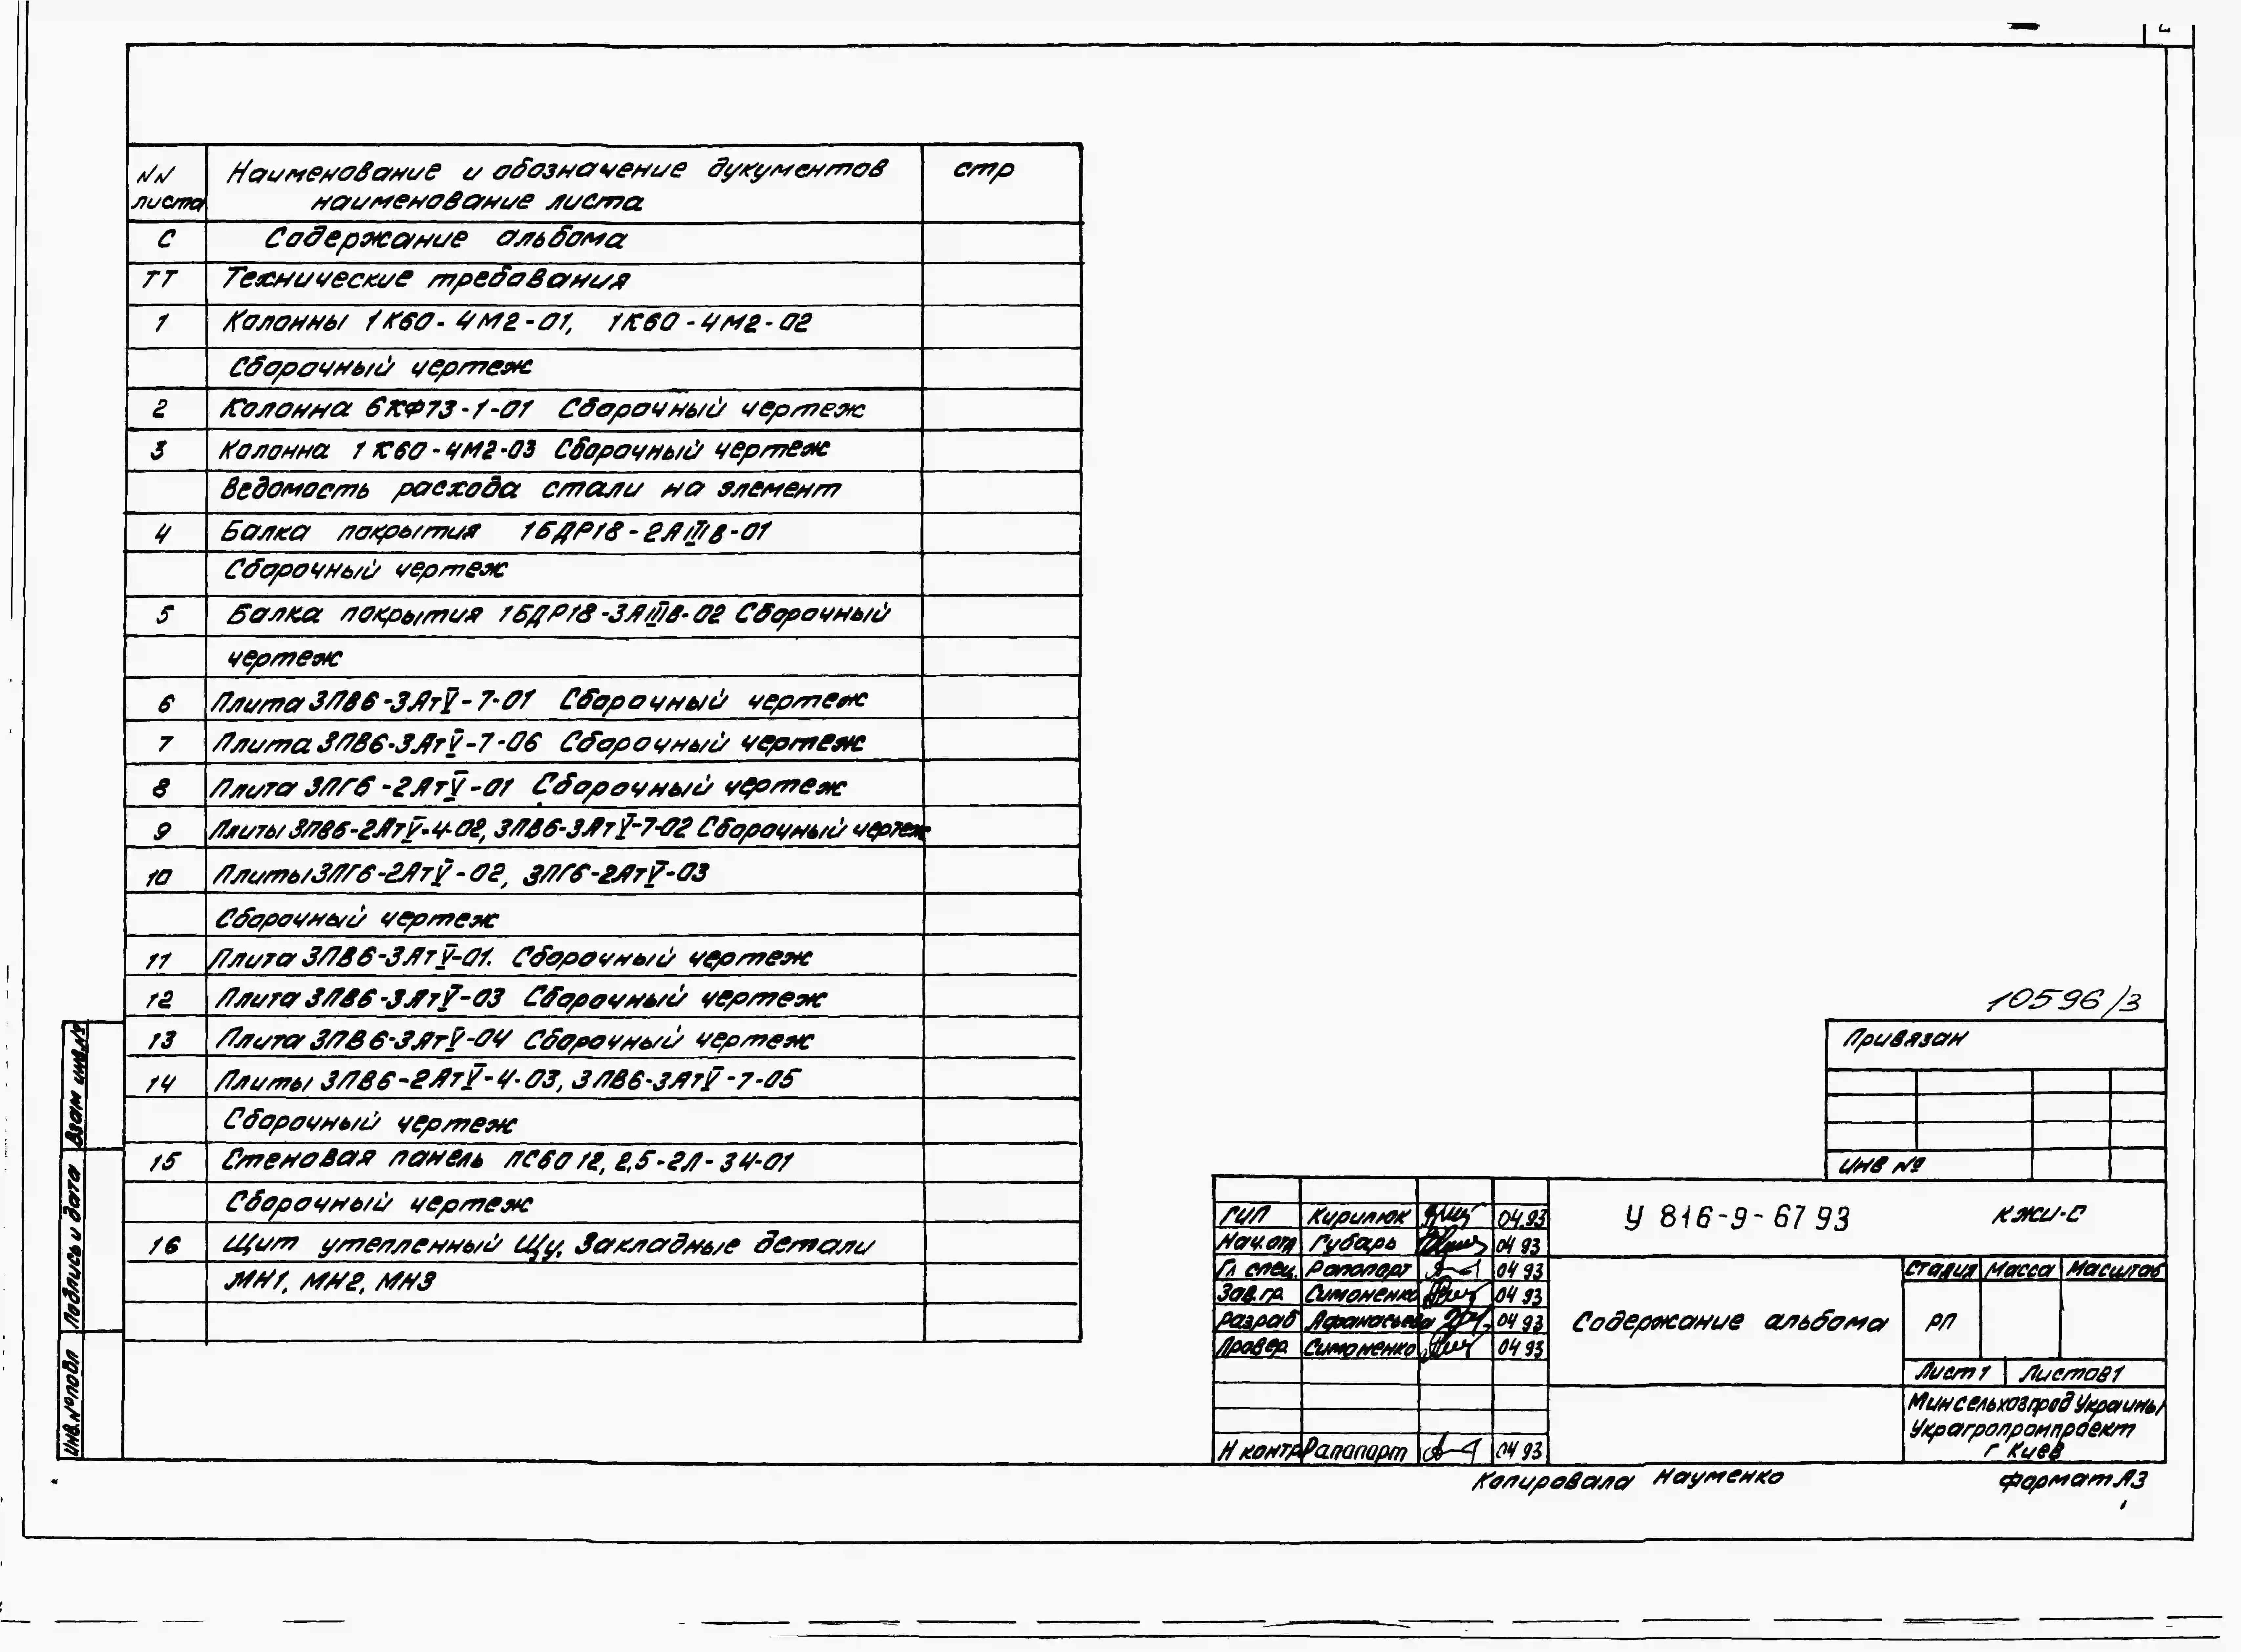 NN
листа
Наименование и обозначение дукументов
наименование листа
стр
С Содержание альбома
ТТ Технические требования
1 Колонны 1К60-4М2-01, 1К60-4М2-02
Сборочный чертеж
2 Колонна 6КФ73-1-01 Сборочный чертеж
3 Колонна 1К60-4М2-03 Сборочный чертеж
Ведомость расхода стали на элемент
4 Балка покрытия 1БДР18-2АIIIв-01
Сборочный чертеж
5 Балка покрытия 1БДР18-3АIIIв-02 Сборочный
чертеж
6 Плита 3ПВ6-3АтV-7-01 Сборочный чертеж
7 Плита 3ПВ6-3АтV-7-06 Сборочный чертеж
8 Плита 3ПГ6-2АтV-01 Сборочный чертеж
9 Плиты 3ПВ6-2АтV-4-02, 3ПВ6-3АтV-7-02 Сборочный чертеж
10 Плиты 3ПГ6-2АтV-02, 3ПГ6-2АтV-03
Сборочный чертеж
11 Плита 3ПВ6-3АтV-01. Сборочный чертеж
12 Плита 3ПВ6-3АтV-03 Сборочный чертеж
13 Плита 3ПВ6-3АтV-04 Сборочный чертеж
14 Плиты 3ПВ6-2АтV-4-03, 3ПВ6-3АтV-7-05
Сборочный чертеж
15 Стеновая панель ПС60 12, 2,5-2Л-34-01
Сборочный чертеж
16 Щит утепленный Щу. Закладные детали
МН1, МН2, МН3
Взам инв.№
Подпись и дата
Инв.№подл
10596/3
Привязан
ИНВ №
ГИП Кирилюк 04.93
Нач.отд Губарь 04 93
Гл спец. Рапопорт 04 93
Зав.гр. Симоненко 04 93
Разраб Афанасьева 04 93
Провер. Симоненко 04 93
Н контр Рапапорт 04 93
У 816-9-67 93
КЖИ-С
Содержание альбома
Стадия Масса Масштаб
РП
Лист 1 Листов 1
Минсельхозпрод Украины
Украгропромпроект
г Киев
Копировала Науменко
Формат А3